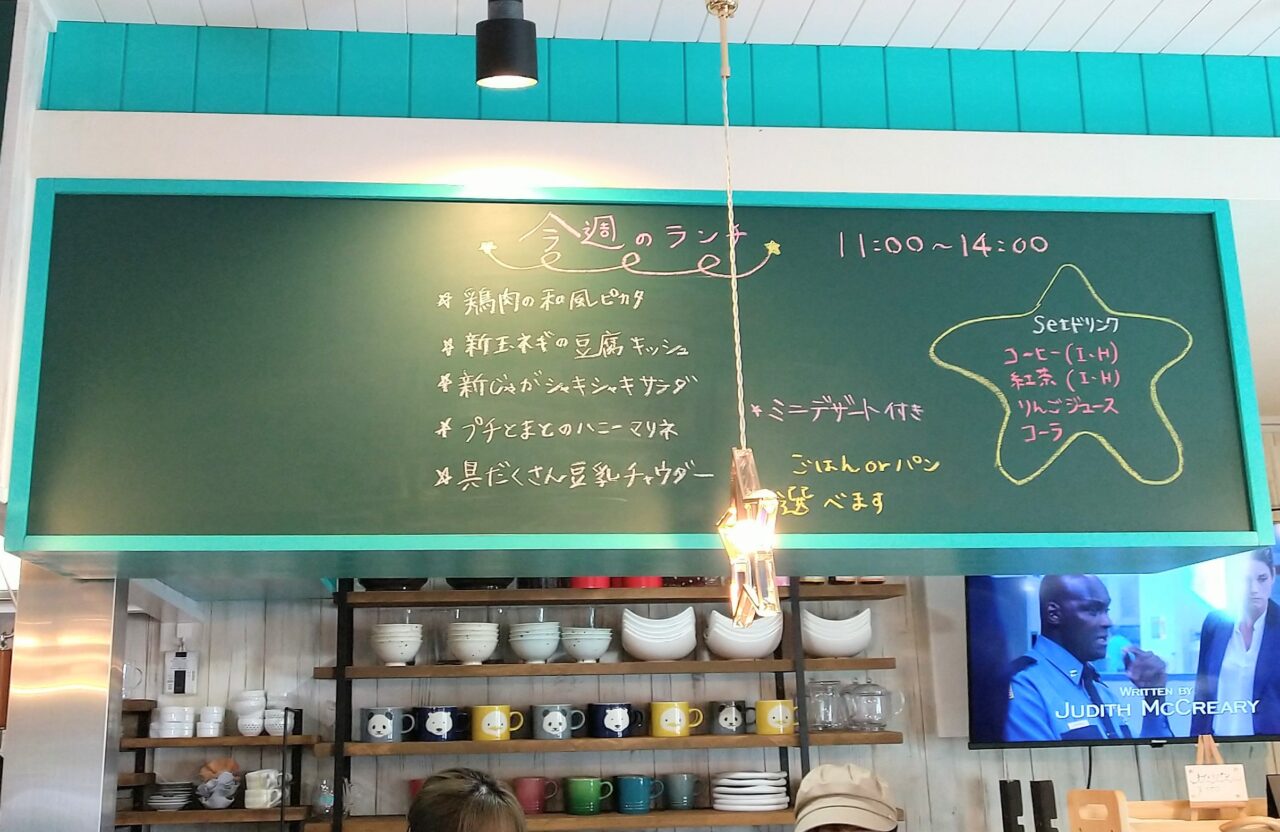 今週のランチ
11:00~14:00
☆鶏肉の和風ピカタ
☆新玉ネギの豆腐キッシュ
☆新じゃがシャキシャキサラダ
☆プチとまとのハニーマリネ
☆具だくさん豆乳チャウダー
☆ミニデザート付き
ごはんorパン
選べます
Setドリンク
コーヒー(I・H)
紅茶(I・H)
りんごジュース
コーラ
WRITTEN BY
JUDITH MCCREARY